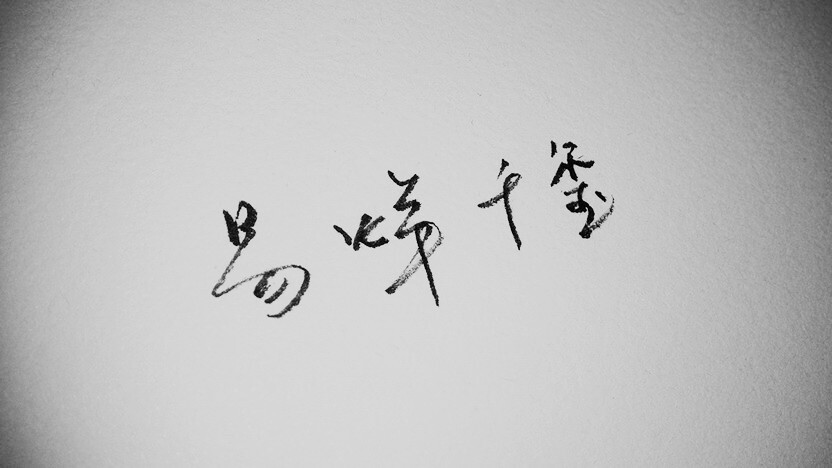 易烊千玺